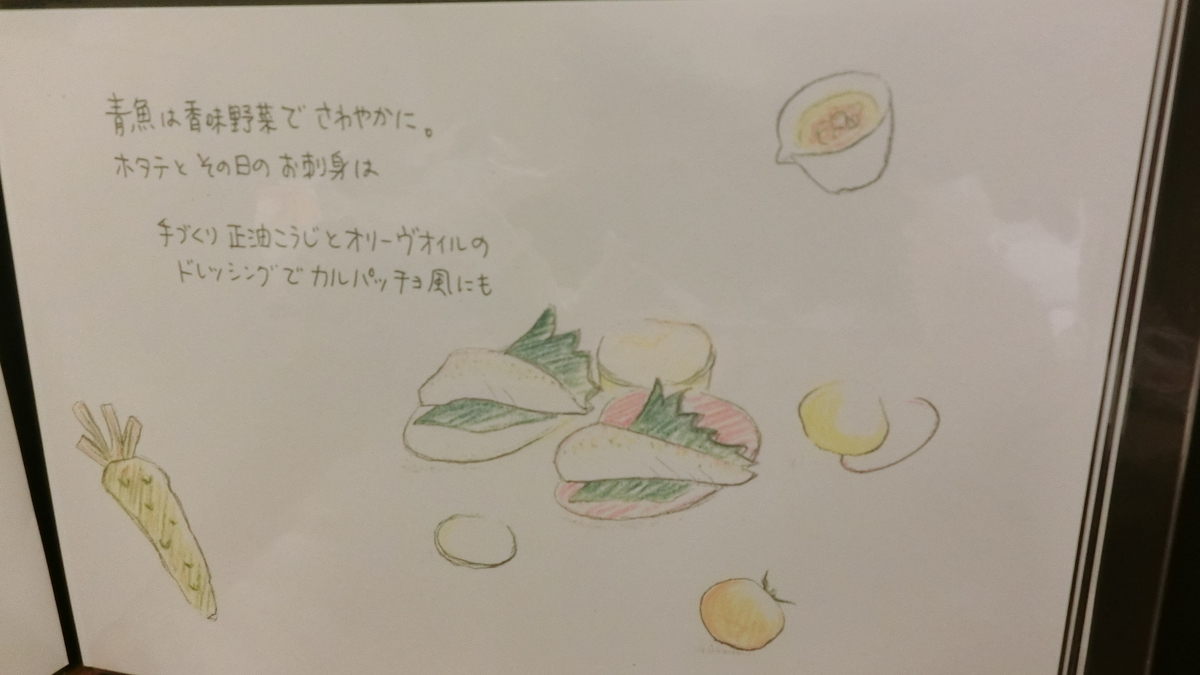 青魚は香味野菜でさわやかに。
ホタテとその日のお刺身は
手づくり正油こうじとオリーヴオイルの
ドレッシングでカルパッチョ風にも